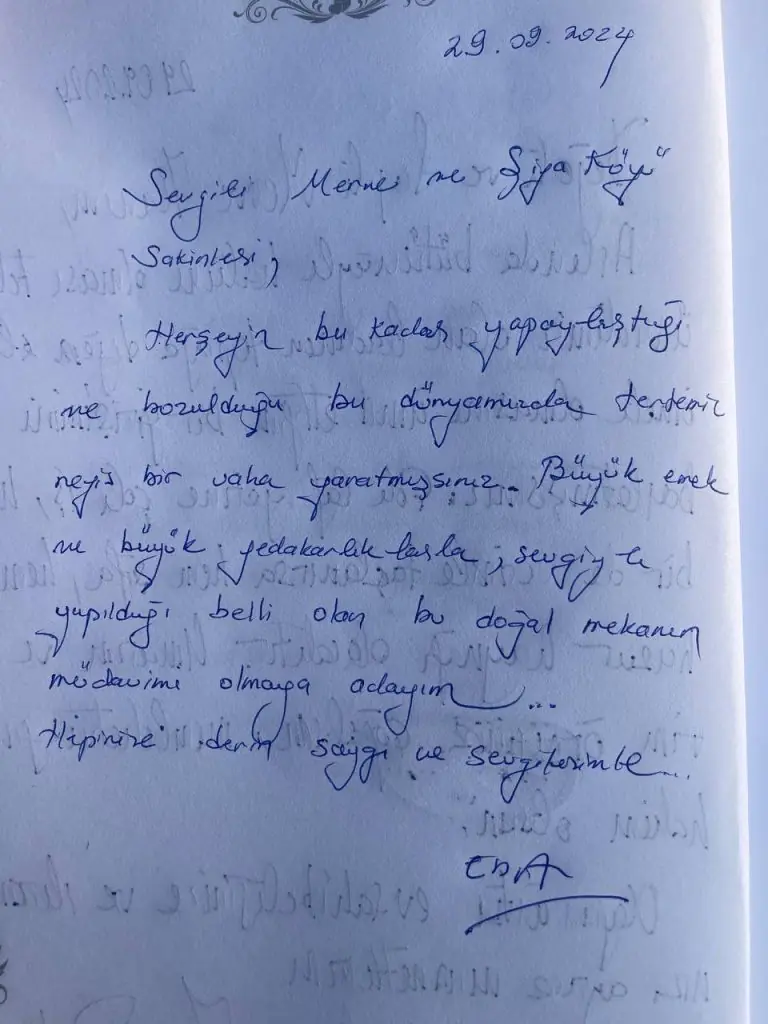 29.09.2024
Sevgili Merve ve Şiya Köyü
Sakinleri;
Herşeyin bu kadar yapaylaştığı
ve bozulduğu bu dünyamızda tertemiz
nefis bir vaha yaratmışsınız. Büyük emek
ve büyük fedakarlıklarla, sevgiyle
yapıldığı belli olan bu doğal mekanın
müdavimi olmaya adayım...
Hepinize derin saygı ve sevgilerimle...
EDA